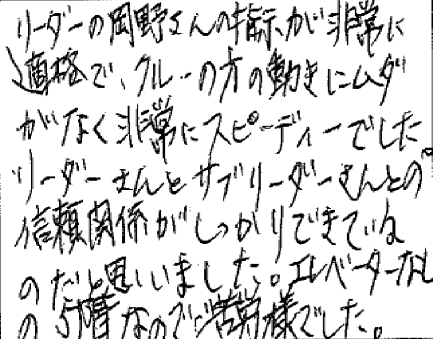 リーダーの岡野さんの指示が非常に
適格で、クルーの方の動きにムダ
がなく非常にスピーディーでした
リーダーさんとサブリーダーさんとの
信頼関係がしっかりできている
のだと思いました。エレベーターなし
の5階なのでご苦労様でした。